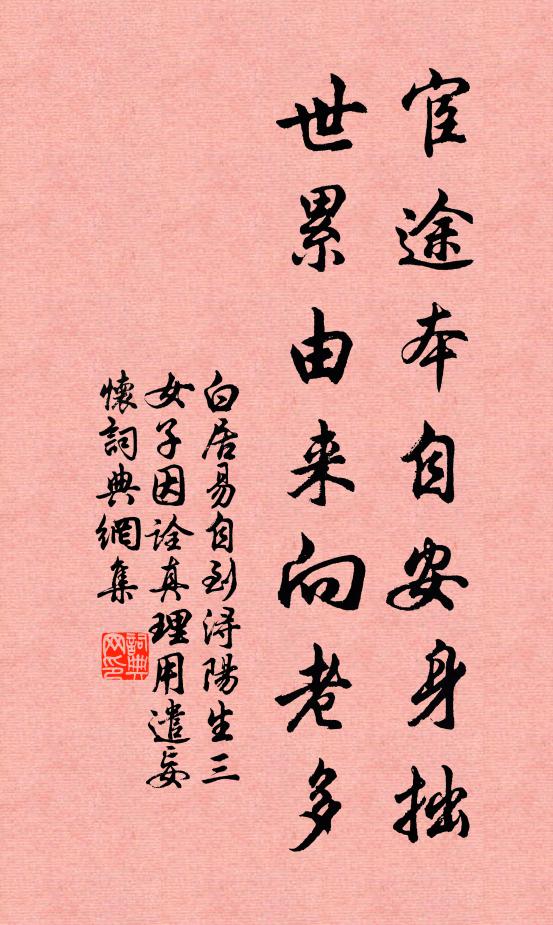 宦途本自安身拙
世累由来向老多
白居易自到潯陽生三
女子因詮真理用遣妄
懷詞典網集
詞典
网印